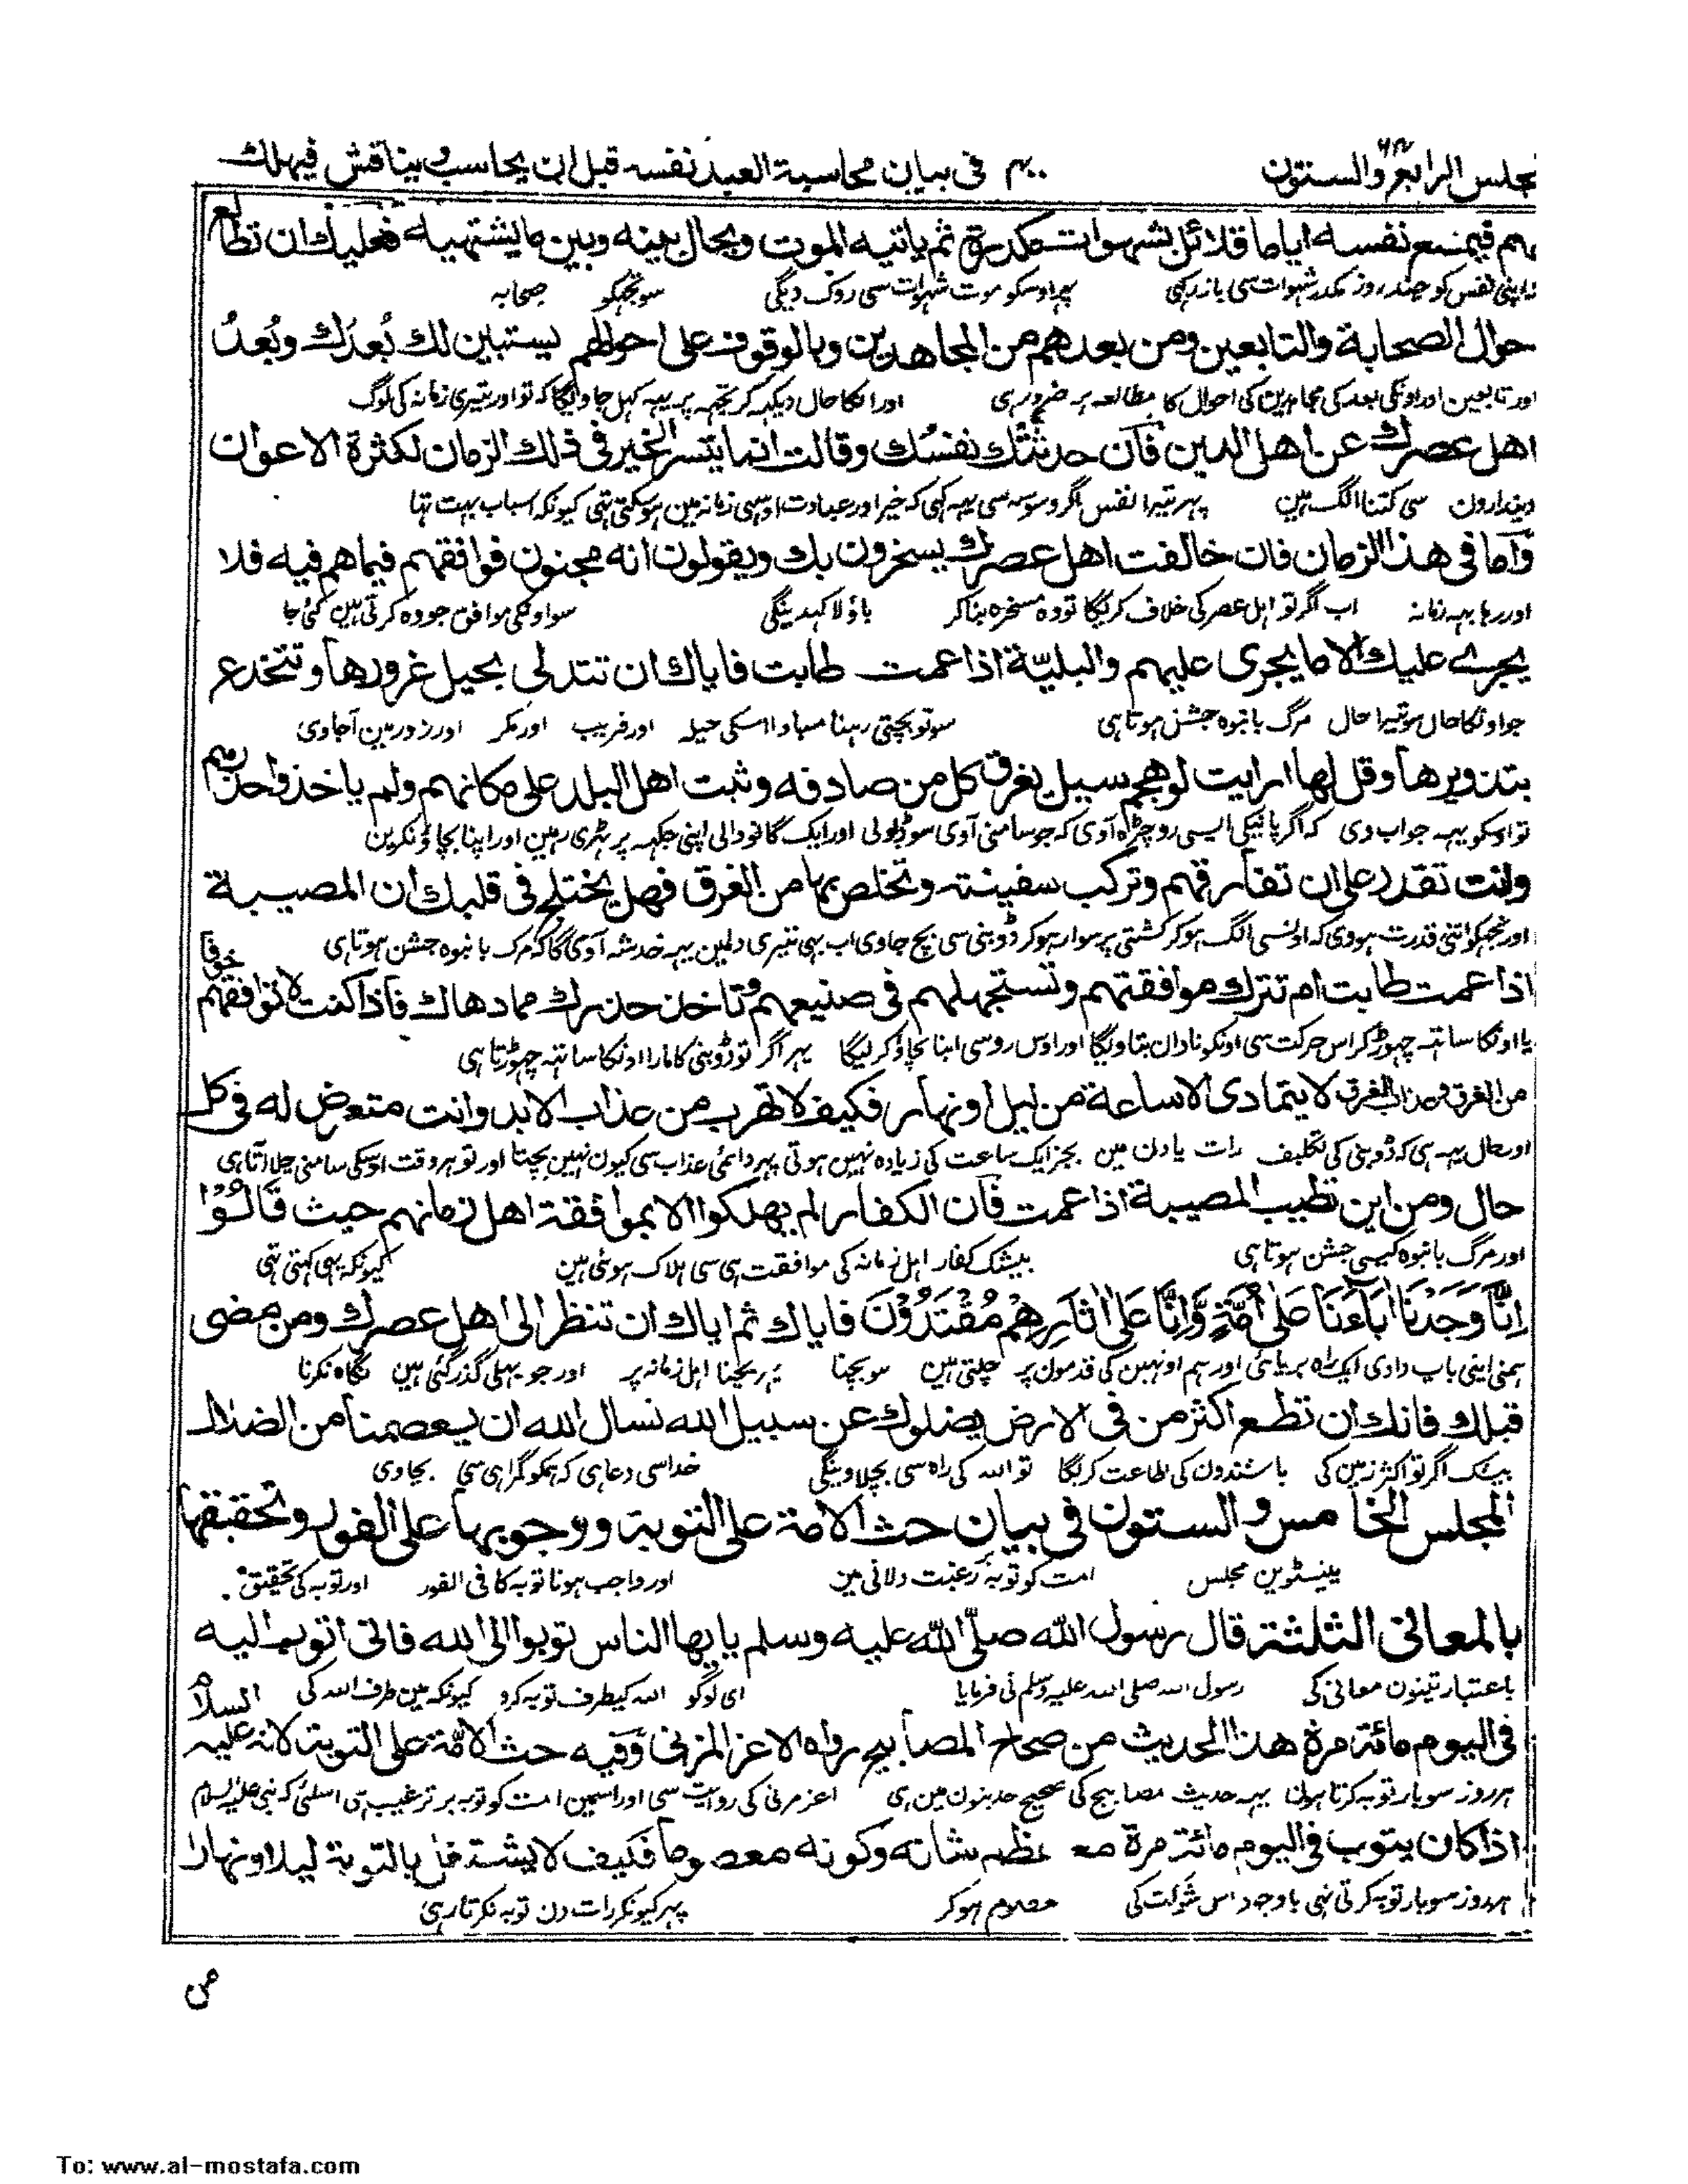 مجلس الرابع والستون ۶۴ ۴۰۰ فى بيان محاسبة العبد نفسه قبل ان يحاسب ويناقش فيهلك
فيمنع نفسه اياما قلائل بشهوات مكدرة ثم ياتيه الموت ويحال بينه وبين ما يشتهيه فعليك ان تطالع
اپنی نفس کو چند روز مکدر شہوات سی باز رکہی پہر اوسکو موت شہوات سی روک دیگی سو تجہکو صحابہ
حوال الصحابة والتابعين ومن بعدهم من المجاهدين وبالوقوف على احوالهم يستبين لك بُعدَك وبُعدُ
اور تابعین اور اونکی بعد کی مجاہدین کی احوال کا مطالعہ پر ضرور ہی اور انکا حال دیکہہ کر تجہہ پر یہہ کہل جاویگا کہ تو اور تیری زمانہ کی لوگ
اهل عصرك عن اهل الدين فان حدثتك نفسك وقالت انما يتسر الخير فى ذلك الزمان لكثرة الاعوان
دیندارون سی کتنا الگ ہین پہر تیرا نفس اگر وسوسہ سی یہہ کہی کہ خیر اور عبادت اوسی زمانہ مین ہو سکتی تہی کیونکہ اسباب بہت تہا
واما فى هذا الزمان فان خالفت اهل عصرك يسخرون بك ويقولون انه مجنون فوافقهم فيما هم فيه فلا
اور رہا یہہ زمانہ اب اگر تو اہل عصر کی خلاف کریگا تو وہ مسخرہ بنا کر باؤلا کہدینگی سو اونکی موافق جو وہ کرتی ہین کئی جا
يجرے عليك الا ما يجرى عليهم والبليّة اذا عمت طابت فاياك ان تتدلى بحيل غرورها وتنخدع
جو اونکا حال سو تیرا حال مرگ بانبوہ جشن ہوتا ہی سو تو بچتی رہنا مبادا اسکی حیلہ اور فریب اور مکر اور زور مین آجاوی
بتزويرها وقل لها ارايت لو هجم سيل يغرق كل من صادفه وثبت اهل البلد على مكانهم ولم ياخذوا حذرهم
تو اوسکو یہہ جواب دی کہ اگر پانیکی ایسی رو چڑہ آوی کہ جو سامنی آوی سو ڈبولی اور ایک گانو والی اپنی جگہہ پر بہڑی رہین اور اپنا بچاؤ نکرین
وانت تقدر على ان تفارقهم وتركب سفينة وتخلص بها من الغرق فهل يختلج فى قلبك ان المصيبة
اور تجہکو اتنی قدرت ہووی کہ اونسی الگ ہو کر کشتی پر سوار ہو کر ڈوبنی سی بچ جاوی اب بہی تیری دلمین یہہ خدشہ آوی گا کہ مرگ بانبوہ جشن ہوتا ہی
اذا عمت طابت ام تترك موافقتهم وتستجهلهم فى صنيعهم وتاخذ حذرك مما دهاك فاذا كنت لا توافقهم خوفاً
یا اونکا ساتہہ چہوڑ کر اس حرکت سی اونکو نادان بتاویگا اور اوس رو سی اپنا بچاؤ کر لیگا پہر اگر تو ڈوبنی کا مارا اونکا ساتہہ چہوڑتا ہی
من الغرق وعذاب الغرق لا يتمادى الا ساعة من ليل او نهار فكيف لا تهرب من عذاب الابد وانت متعرض له فى كل
اور حال یہہ ہی کہ ڈوبنی کی تکلیف رات یا دن مین بجز ایک ساعت کی زیادہ نہین ہوتی پہر دائمی عذاب سی کیون نہین بچتا اور تو ہر وقت اوسکی سامنی چلا آتا ہی
حال ومن اين تطيب المصيبة اذا عمت فان الكفار لم يهلكوا الا بموافقة اهل زمانهم حيث قَالُوْا
اور مرگ بانبوہ کیسی جشن ہوتا ہی بیشک کفار اہل زمانہ کی موافقت ہی سی ہلاک ہوئی ہین کیونکہ یہی کہتی تہی
اِنَّا وَجَدْنَا اٰبَآءَنَا عَلٰى اُمَّةٍ وَّاِنَّا عَلٰى اٰثَارِهِمْ مُقْتَدُوْنَ فاياك ثم اياك ان تنظر الى اهل عصرك ومن مضى
ہمنی اپنی باپ دادی ایک راہ پر پائی اور ہم اونہین کی قدمون پر چلتی ہین سو بچنا پہر بچنا اہل زمانہ پر اور جو پہلی گذر گئی ہین نگاہ نکرنا
قبلك فانك ان تطع اكثر من فى الارض يضلوك عن سبيل الله نسال الله ان يعصمنا من الضلال
بیشک اگر تو اکثر زمین کی باشندون کی طاعت کریگا تو اللہ کی راہ سی بچلاوینگی خدا سی دعا ہی کہ ہمکو گمراہی سی بچاوی
المجلس الخامس والستون فى بيان حث الامة على التوبة ووجوبها على الفور وتحقيقها
پینسٹوین مجلس امت کو توبہ پر رغبت دلانی مین اور واجب ہونا توبہ کا فی الفور اور توبہ کی تحقیق
بالمعانى الثلثة قال رسول الله صلّى الله عليه وسلم يايها الناس توبوا الى الله فانى اتوب اليه
باعتبار تینون معانی کی رسول اللہ صلی اللہ علیہ وسلم نی فرمایا ای لوگو اللہ کیطرف توبہ کرو کیونکہ مین طرف اللہ کی
فى اليوم مائة مرة هذا الحديث من صحاح المصابيح رواه الاعز المزنى وفيه حث الامّة على التوبة لانه عليه السلام
ہر روز سو بار توبہ کرتا ہون یہہ حدیث مصابیح کی صحیح حدیثون مین ہی اعز مزنی کی روایت سی اور اسمین امت کو توبہ پر ترغیب ہی اسلئی کہ نبی علیہ السلام
اذا كان يتوب فى اليوم مائة مرة مع عظم شانه وكونه معصوما فكيف لا يشتغل بالتوبة ليلا ونهارا
ہر روز سو بار توبہ کرتی تہی باوجود اس شوکت کی معصوم ہو کر پہر کیونکر رات دن توبہ نکرتا رہی
من
To: www.al-mostafa.com